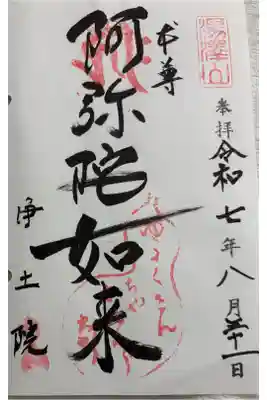 奉拝
令和七年八月三十一日
本尊
阿弥陀如来
浄土院